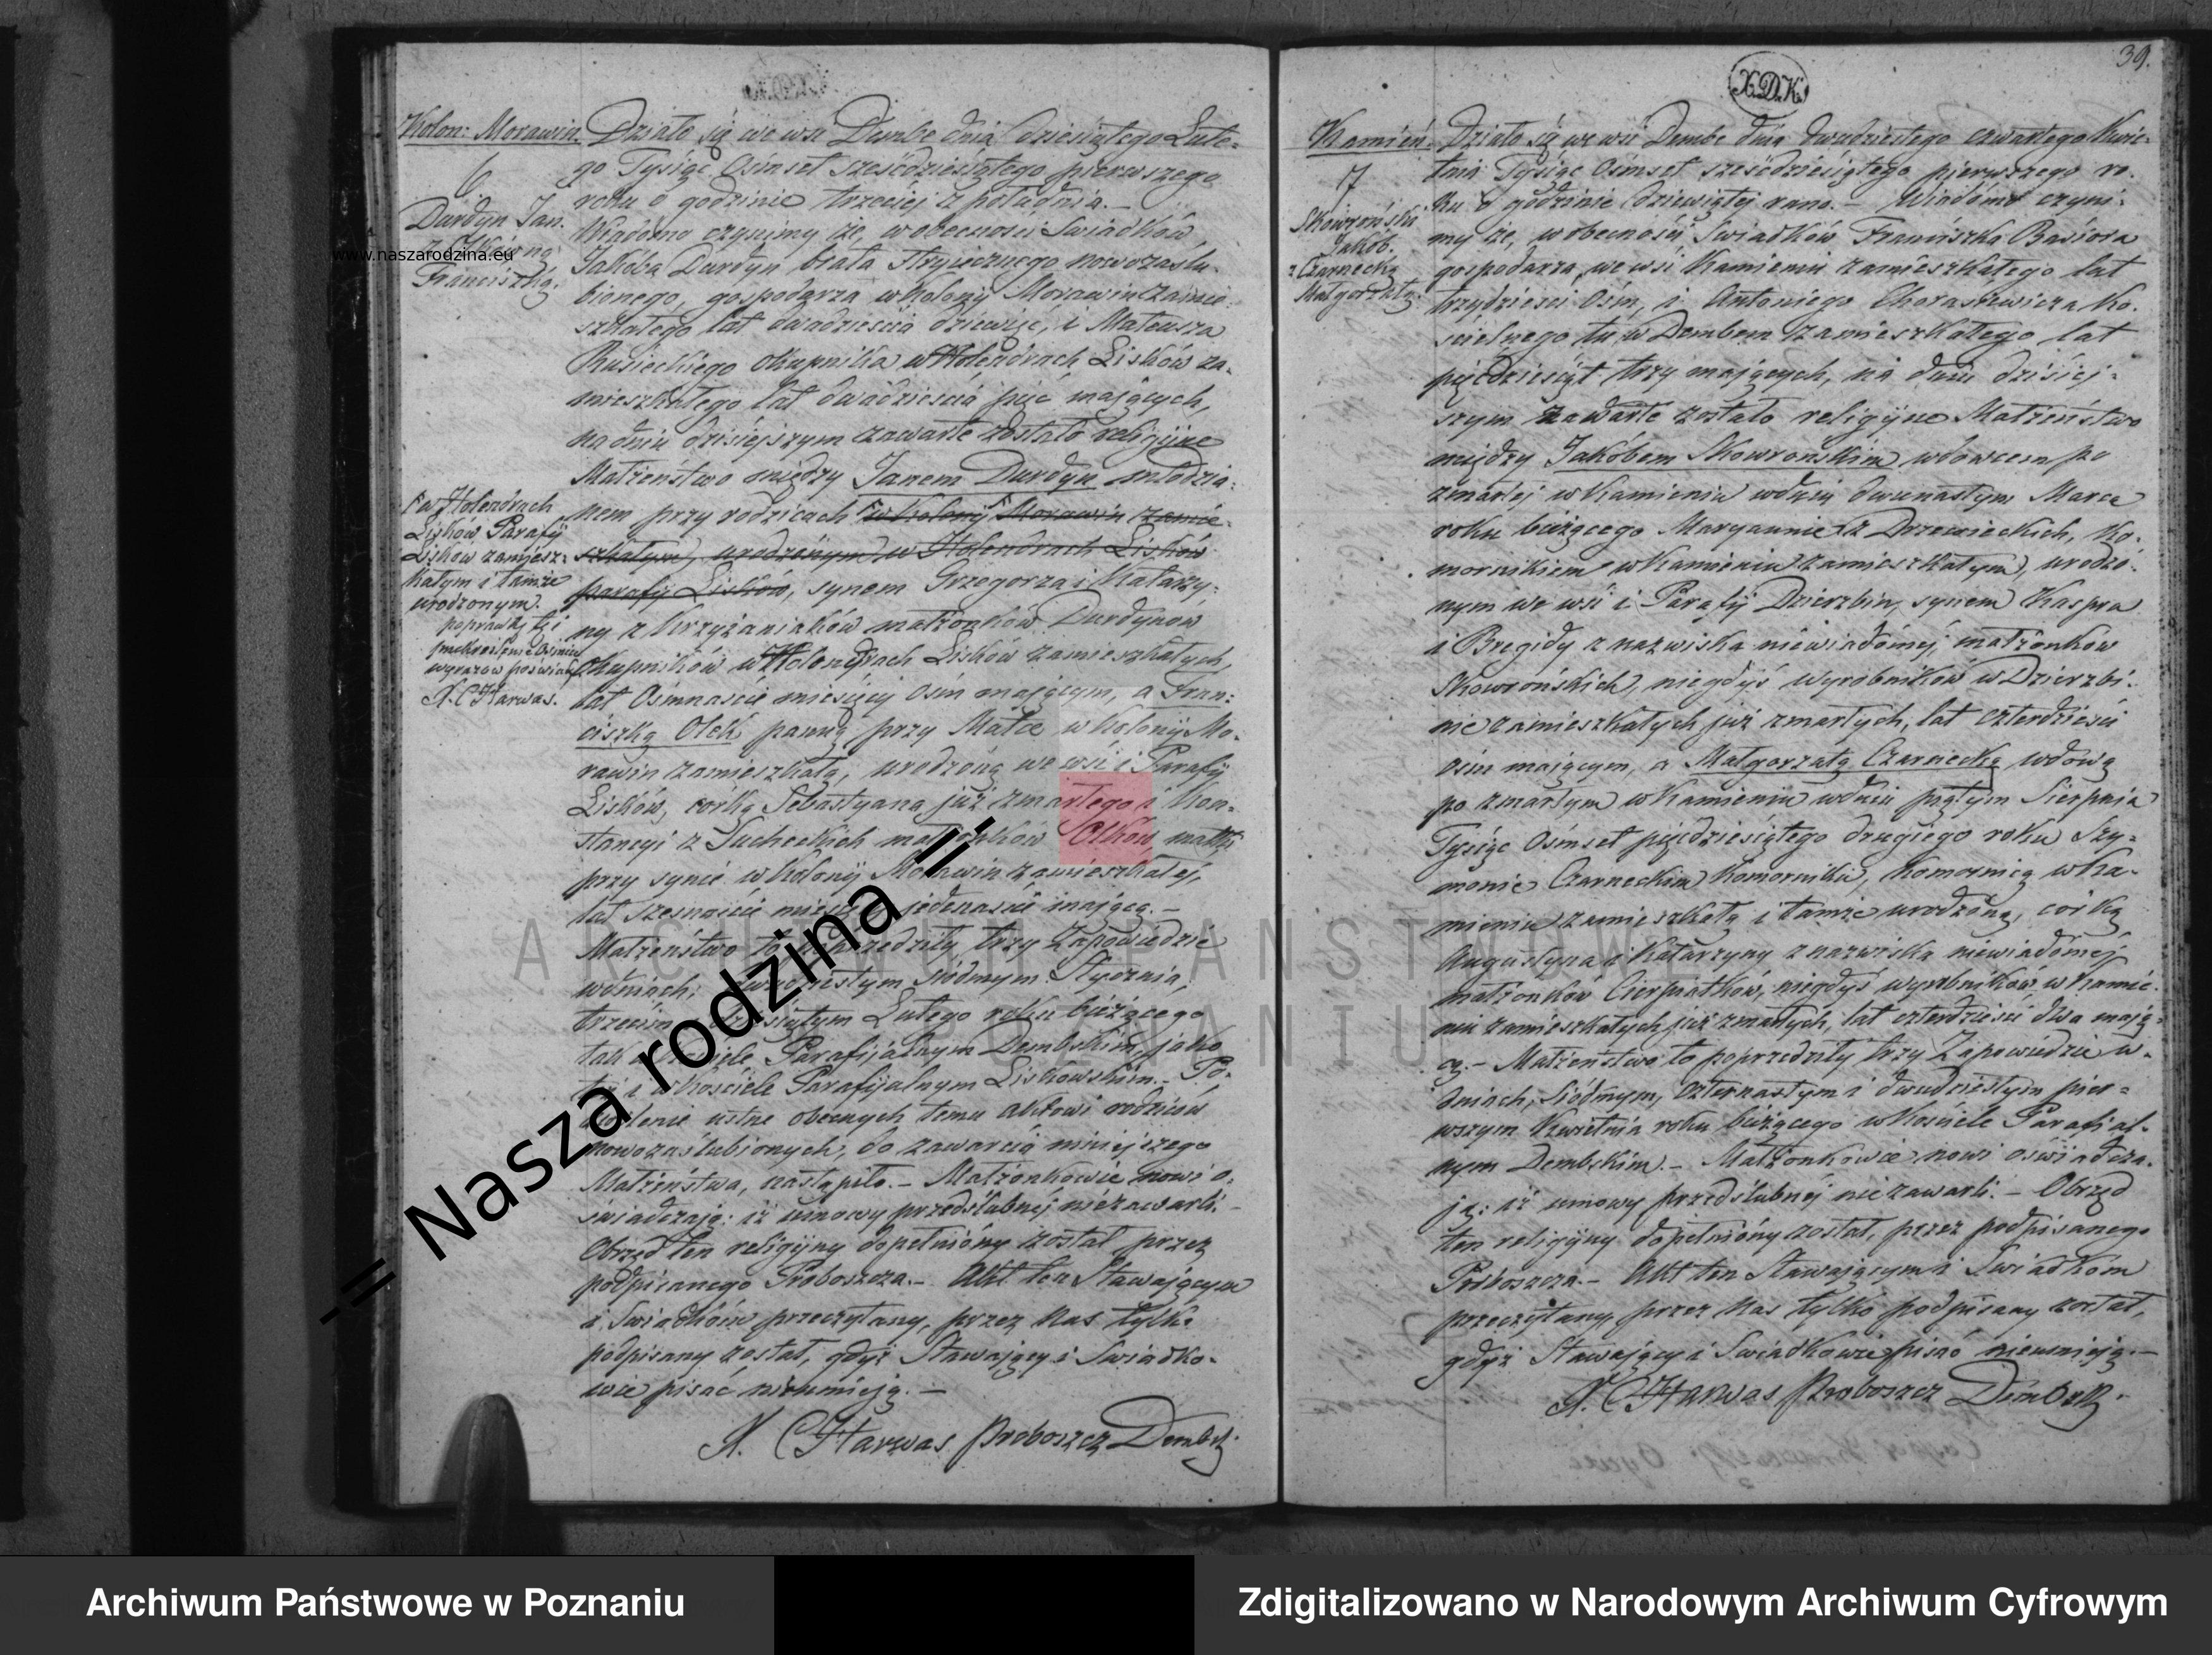 Kolon: Morawin.
6
Durdyn Jan.
z Olkówną
Franciszką.
www.naszarodzina.eu
Działo się we wsi Dembe dnia dziesiątego Lute-
go Tysiąc Ośmset sześćdziesiątego pierwszego
roku o godzinie trzeciej z południa. –
Wiadomo czynimy że, w obecności Swiadków,
Jakóba Durdyn brata stryiecznego nowozaślu-
bionego, gospodarza w Kolonij Morawin zamie-
szkałego lat dwadzieścia dziewięć, i Mateusza
Rusieckiego Okupnika w Holendrach Lisków za-
mieszkałego lat dwadzieścia pięć mających,
na dniu dzisiejszym zawarte zostało religijne
Małżeństwo między Janem Durdyn młodzia-
nem przy rodzicach w Kolonij Morawin zamie-
szkałym, urodzonym w Holendrach Lisków
parafij Lisków, synem Grzegorza i Katarzy-
ny z Krzyżaniaków małżonków Durdynów
Okupników w Holendrach Lisków zamieszkałych,
lat Ośmnaście miesięcy Ośm mającym, a Fran-
ciszką Olek panną przy Matce w Kolonij Mo-
rawin zamieszkałą, urodzoną we wsi i Parafij
Lisków, córką Sebastyana już zmarłego i Kon-
stancyi z Sucheckich małżonków Olków matki
przy synie w Kolonij Morawin zamieszkałej,
lat szesnaście miesięcy jedenaście mającą. –
Małżeństwo to poprzedziły trzy Zapowiedzie
w dniach: dwudziestym siódmym Stycznia,
trzecim i dziesiątym Lutego roku bieżącego
tak w Kościele Parafijalnym Dembskim, jako
też i w Kościele Parafijalnym Liskowskim. – Po-
zwolenie ustne obecnych temu aktowi rodziców
nowozaślubionych, do zawarcia niniejszego
Małżeństwa, nastąpiło. – Małżonkowie nowi o-
świadczają: iż umowy przedślubnej niezawarli. –
Obrzęd ten religijny dopełniony został przez
podpisanego Proboszcza. – Akt ten Stawającym
i Swiadkom przeczytany, przez Nas tylko
podpisany został, gdyż Stawający i Swiadko-
wie pisać nieumieją. –
X. C Harwas Proboszcz Dembski
w Holendrach
Lisków Parafij
Lisków zamiesz-
kałym i tamże
urodzonym.
poprawkę tę i
przekreślenie Ośmiu
wyrazów poświadcz
X. C Harwas.
39.
X.D.K.
Kamień.
7
Skowroński
Jakób.
z Czarnecką
Małgorzatą.
Działo się we wsi Dembe dnia dwudziestego czwartego Kwie-
tnia Tysiąc Ośmset sześćdziesiątego pierwszego ro-
ku o godzinie dziewiątej rano. – Wiadomo czyni-
my że, w obecności Swiadków Franciszka Basiora
gospodarza we wsi Kamieniu zamieszkałego lat
trzydzieści Ośm, i Antoniego Charaszewicza Ko-
ścielnego tu w Dembem zamieszkałego lat
pięćdziesiąt trzy mających, na dniu dzisiej-
szym zawarte zostało religijne Małżeństwo
między Jakóbem Skowrońskim, wdowcem po
zmarłej w Kamieniu w dniu dwunastym Marca
roku bieżącego Maryannie z Drzewieckich, Ko-
mornikiem w Kamieniu zamieszkałym, urodzo-
nym we wsi i Parafij Dzierzbin, synem Kaspra
i Bregidy z nazwiska niewiadomej małżonków
Skowrońskich, niegdyś wyrobników w Dzierzbi-
nie zamieszkałych już zmarłych, lat czterdzieści
Ośm mającym, a Małgorzatą Czarnecką, wdową
po zmarłym w Kamieniu w dniu piątym Sierpnia
Tysiąc Ośmset pięćdziesiątego drugiego roku Szy-
monie Czarneckim Komorniku, Komornicą w Ka-
mieniu zamieszkałą i tamże urodzoną, córką
Augustyna i Katarzyny z nazwiska niewiadomej
małżonków Cierpiatków, niegdyś wyrobników w Kamie-
niu zamieszkałych już zmarłych, lat czterdzieści dwa mają-
cą. – Małżeństwo to poprzedziły trzy Zapowiedzie w
dniach, siódmym, czternastym i dwudziestym pier-
wszym Kwietnia roku bieżącego w Kościele Parafial-
nym Dembskim. – Małżonkowie nowi oświadcza-
ją: iż umowy przedślubnej niezawarli. – Obrzęd
ten religijny dopełniony został, przez podpisanego
Proboszcza. – Akt ten Stawającym i Swiadkom
przeczytany, przez Nas tylko podpisany został,
gdyż Stawający i Swiadkowie pisać nieumieją. –
X. C Harwas Proboszcz Dembski.
ARCHIWUM PAŃSTWOWE
W POZNANIU
-= Nasza rodzina =-
Archiwum Państwowe w Poznaniu
Zdigitalizowano w Narodowym Archiwum Cyfrowym